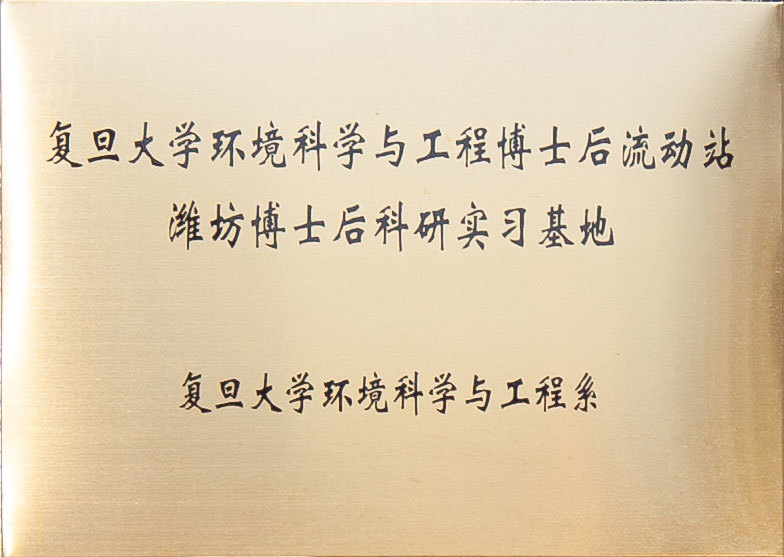 复旦大学环境科学与工程博士后流动站
潍坊博士后科研实习基地
复旦大学环境科学与工程系